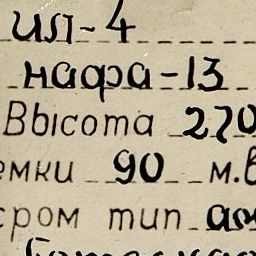 ил-4
нафа-13
Высота 270
емки 90 м.в
ром тип ам